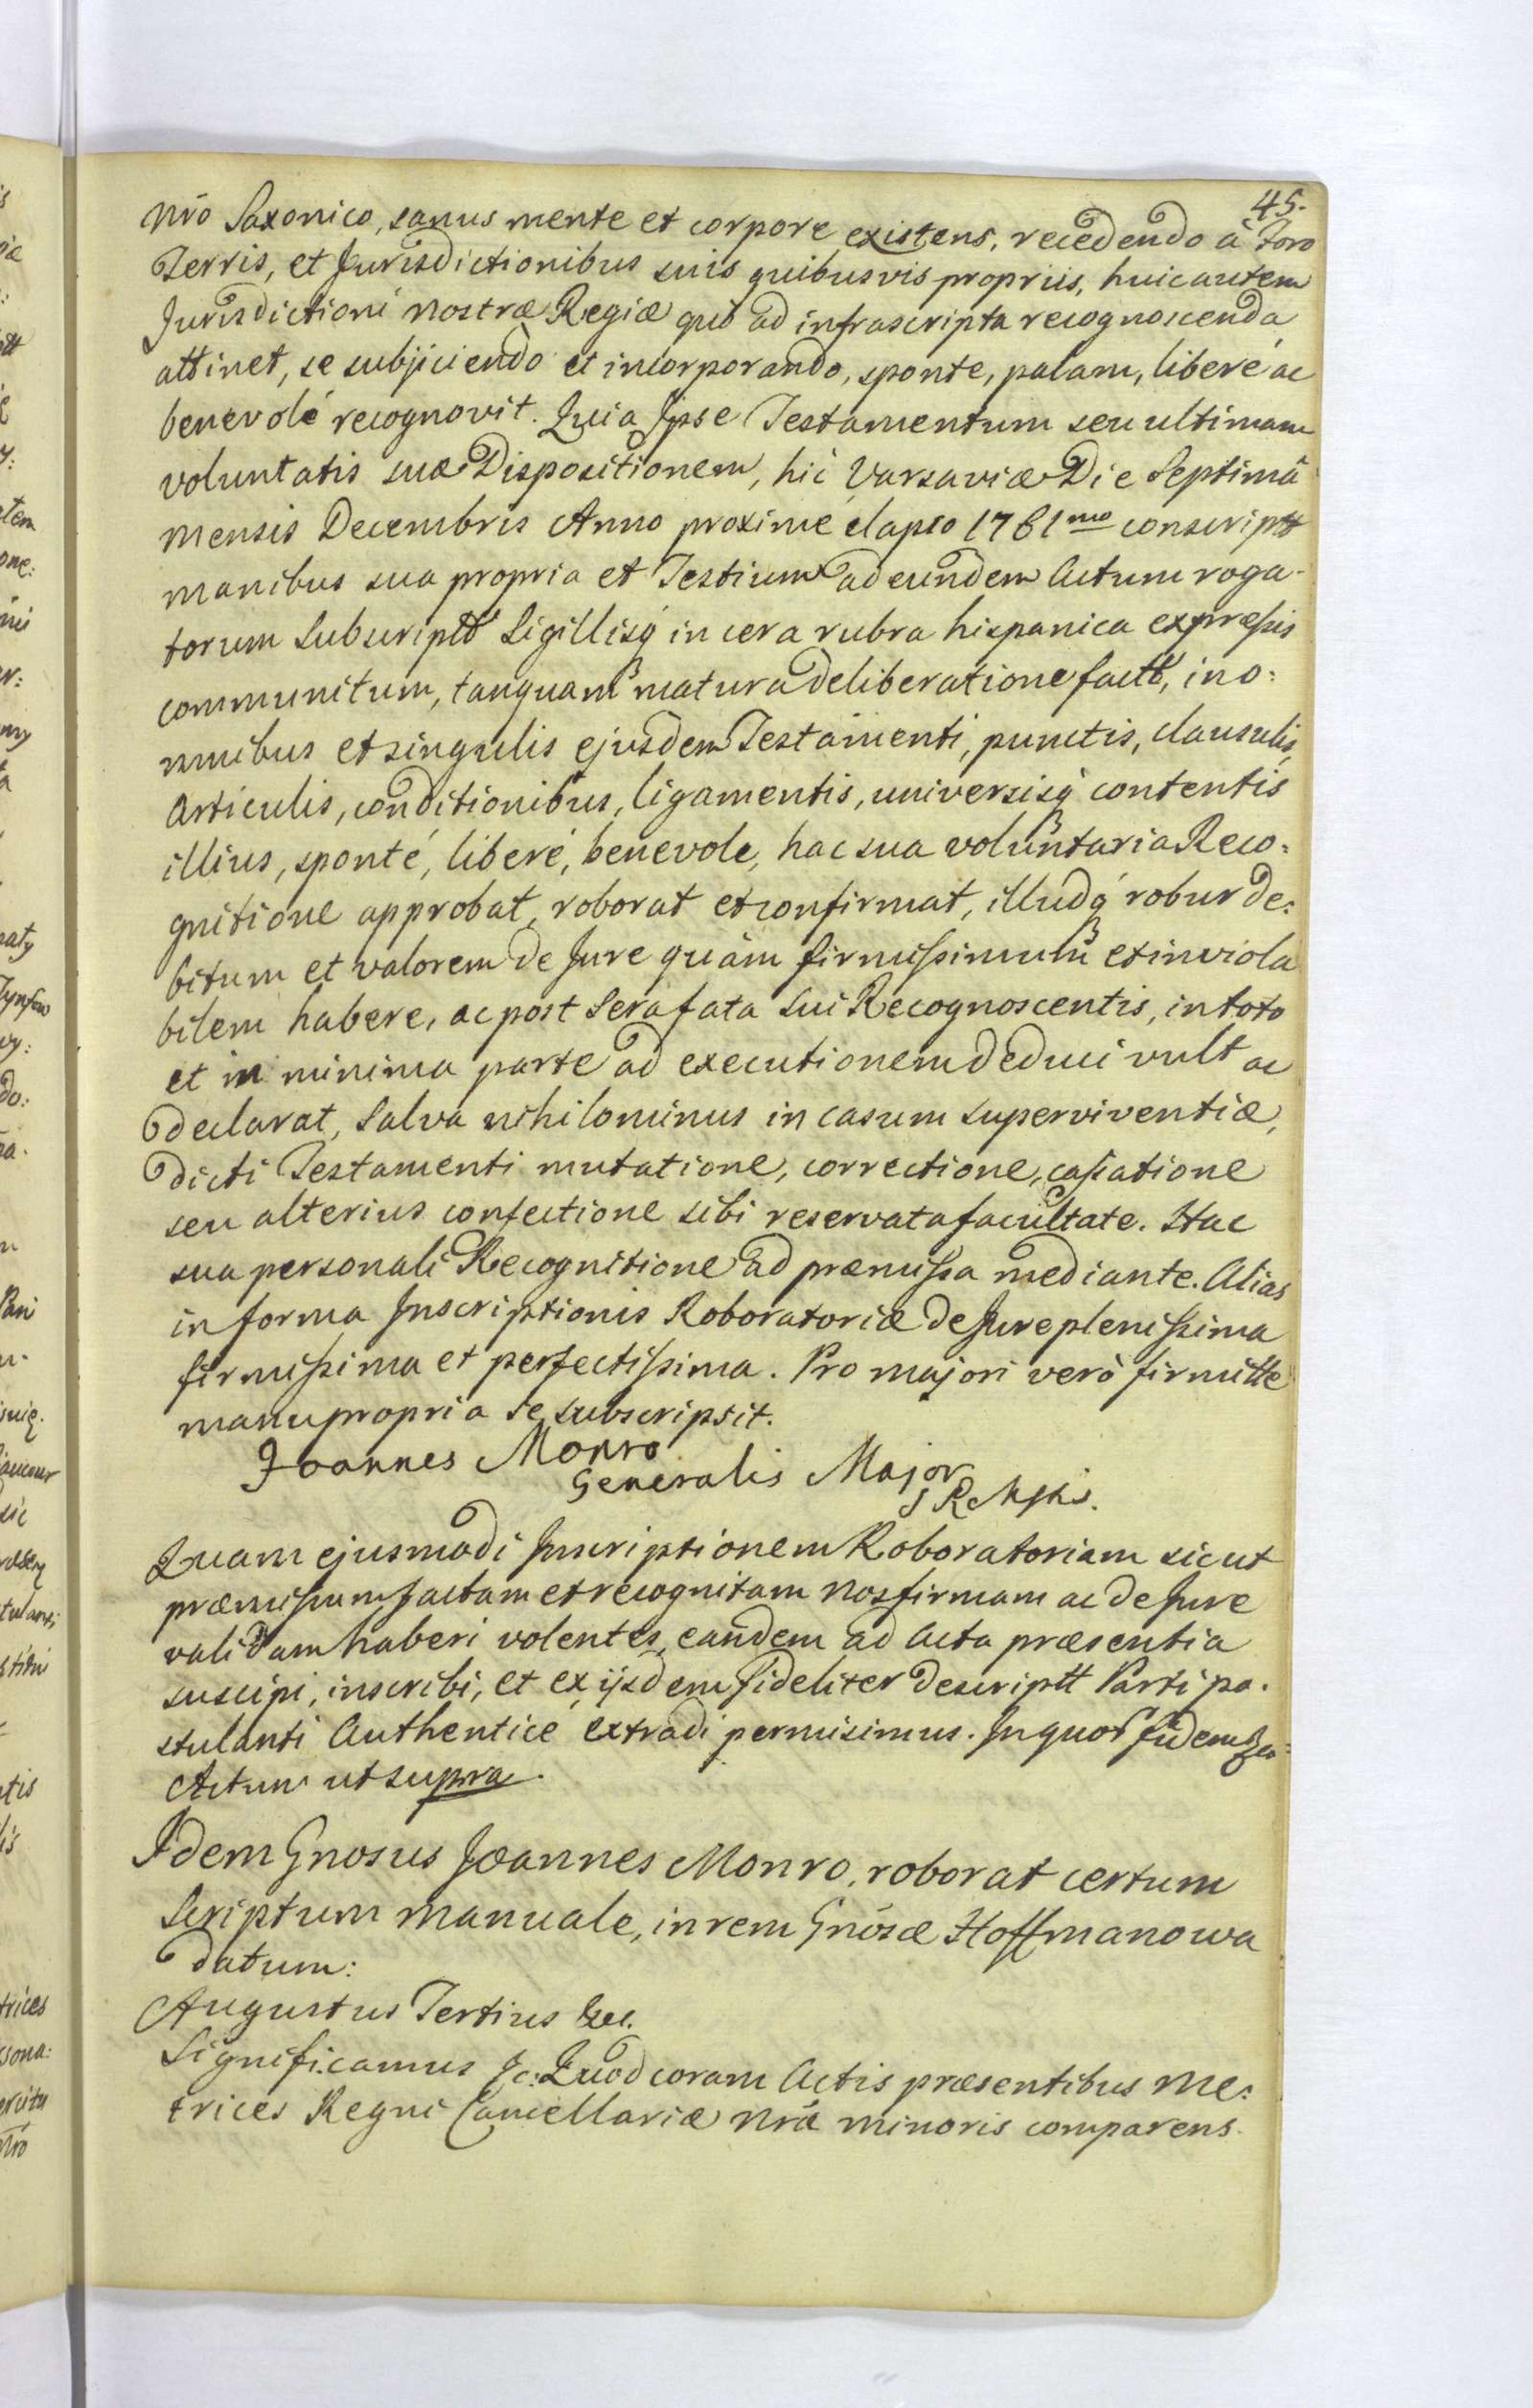 45.
Nrõ Saxonico, sanus mente et corpore existens, recedendo à Foro
Terris, et Jurisdictionibus suis quibusvis propriis, huic autem
Jurisdictioni Nostræ Regiæ quò ad infrascripta recognoscenda
attinet, se subjiciendo et incorporando, sponte, palam, liberé ac
benevolé recognovit. Quia Ipse Testamentum seu ultimam
voluntatis suæ Dispositionem, hic Varsaviæ Die Septimâ
Mensis Decembris Anno proximé elapso 1761mo conscriptt
manibus sua propria et Testium ad eundem Actum roga-
torum Subscriptt Sigillisq́ in cera rubra hispanica expressis
communitum, tanquam matura deliberatione factt, in o:
mnibus et singulis ejusdem Testamenti, punctis, clausulis,
Articulis, conditionibus, ligamentis, universisq́ contentis
illius, sponté, liberé, benevole, hac sua voluntaria Reco:
gnitione approbat, roborat et confirmat, illudq́ robur de:
bitum et valorem de Jure quàm firmissimum et inviola
bilem habere, ac post Sera fata sui Recognoscentis, in toto
et in minima parte ad executionem deduci vult ac
declarat, Salva nihilominus in casum superviventiæ,
dicti Testamenti mutatione, correctione, cassatione
seu alterius confectione sibi reservata facultate. Hac
sua personali Recognitione ad præmissa mediante. Alias
in forma Inscriptionis Roboratoriæ de Jure plenissima
firmissima et perfectissima. Pro majori verò firmitte
manu propria se subscripsit.
Joannes Monro
Generalis Major
S R Mttis.
Quam ejusmodi Inscriptionem Roboratoriam sicut
præmissum factam et recognitam Nos firmam ac de Jure
validam haberi volentes, eandem ad Acta præsentia
suscipi, inscribi, et ex ijsdem fideliter descriptt Parti po.
stulanti Authenticé extradi permisimus. In quor̃ fidem &c:
Actum ut supra.
Idem Gnosus Joannes Monro, roborat certum
Scriptum Manuale, in rem Gnosæ Hoffmanowa
datum:
Augustus Tertius &c.
Significamus &c: Quod coram Actis præsentibus Me:
trices Regni Cancellariæ Nrã minoris comparens.